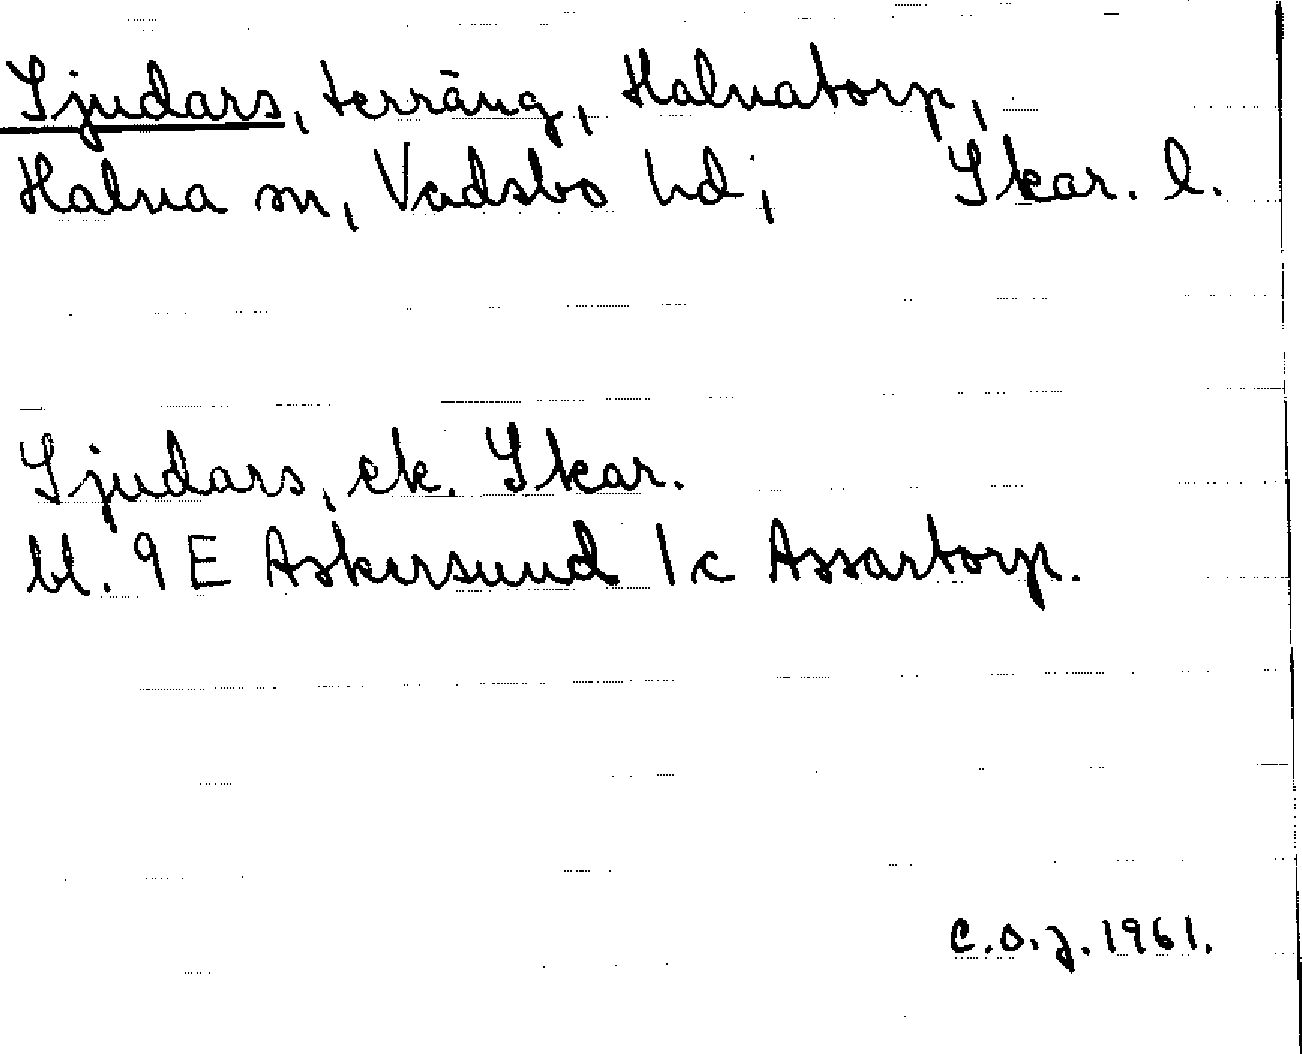 Sjudars, terräng, Halnatorp,
Halna sn, Vadsbo hd; Skar. l.
Sjudars, ek. Skar.
bl. 9 E Askersund 1c Assartorp.
c.o.z.1961.